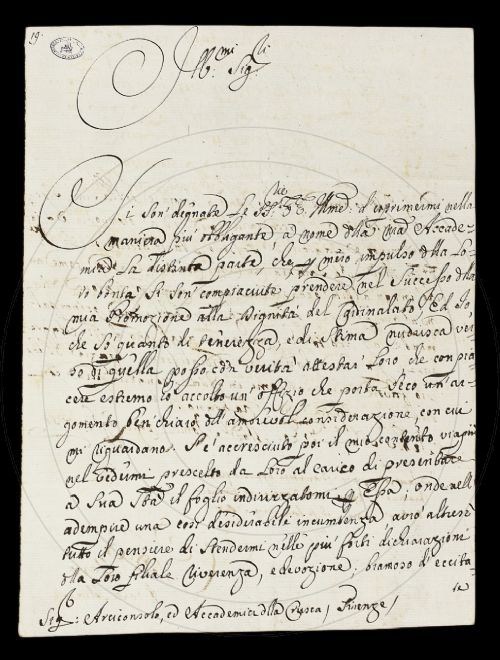 19.
Ill.mi Sig.li
Si son' degnate le SS.rie VV. Illme. d'esprimermi nella
maniera più obbligante à nome della sua Accade-
mia la distinta parte, che p mero impulso della Lo-
ro bontà si son' compiaciute prendere nel Successo della
mia Promozione alla Dignità del Cardinalato. Ed Io
che sò quanto di tenerezza, e di stima nudrisca ver-
so di quella posso con verità attestar Loro che con pia-
cere estremo hò accolto un' offizio che porta seco un' ar-
gomento ben chiaro dell' amorevol considerazione con cui
mi riguardano. S'è accresciuto poi il mio contento
nel vedermi prescelto da Loro al carico di presentare
à Sua Stà il foglio indirizzatomi p Essa, onde nell'
adempire una così desiderabile incumbenza avrò altresì
tutto il pensiere di stendermi nelle più forti dichiarazioni
della Loro filiale riverenza, e devozione; bramoso d'eccita-
re
Sig.ri Arciconsolo, ed Accademici della Crusca / Firenze /